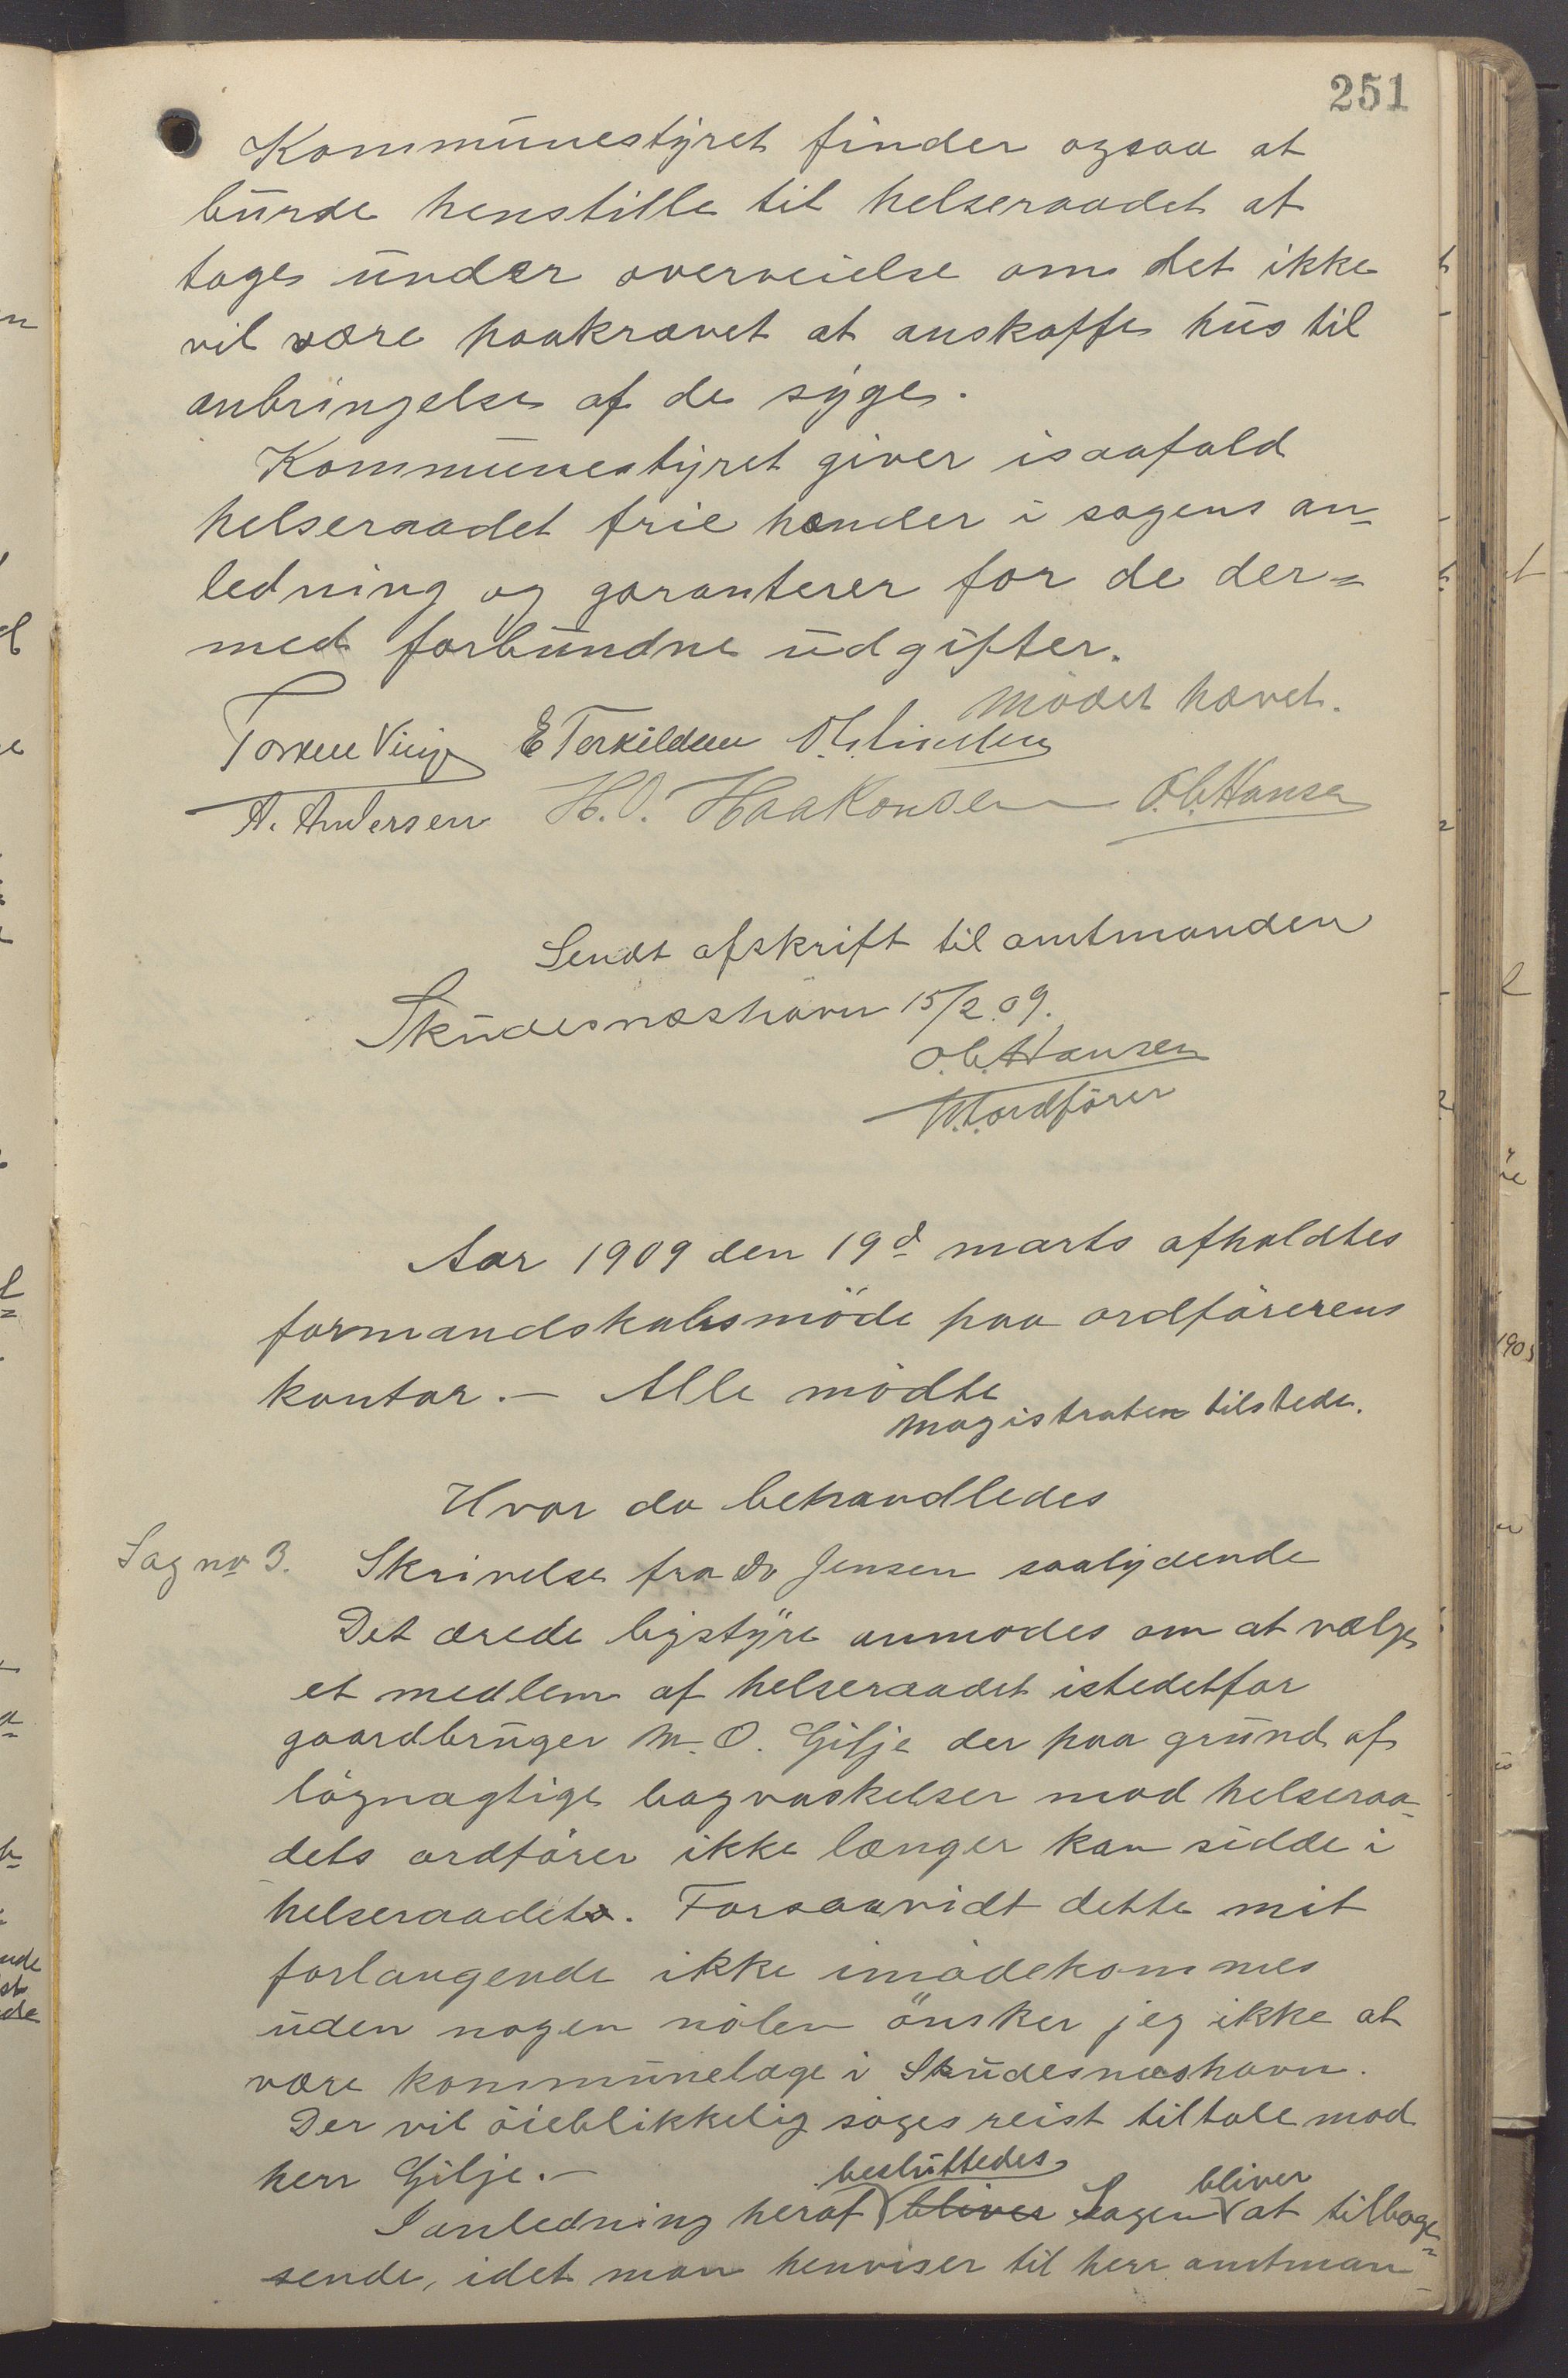 251
Kommunestyret finder ogsaa at
burde henstille til helseraadet at
tage under overveielse om det ikke
vil være paakrævet at anskaffe hus til
anbringelse af de syge.
Kommunestyret giver isaafald
helseraadet frie hænder i sagens an-
ledning og garanterer for de der=
med forbundne udgifter.
Mödet hævet.
E Terkildsen
A. Andersen H.O. Haakonsen O.C. Hansen
Sendt afskrift til amtmanden
Skudesneshavn 15/2 09.
O.C. Hansen
V. ordförer
Aar 1909 den 19d marts afholdtes
formandskabsmöde paa ordförerens
kontor. — Alle mödte
Magistraten tilstede.
Hvor da behandledes
Sag no 3. Skrivelse fra Dr Jensen saalydende
Det ærede bystyre anmodes om at vælge
et medlem af helseraadet istedetfor
gaardbruger M. O. Gilje der paa grund af
lögnagtige bagvaskelser mod helseraa-
dets ordförer ikke længer kan sidde i
helseraadet. Forsaavidt dette mit
forlangende ikke imödekommes
uden nogen nölen önsker jeg ikke at
være kommunelæge i Skudesneshavn.
Der vil öieblikkelig söges reist tiltale mod
herr Gilje. —
besluttedes bliver
I anledning heraf bliver Sagen at tilbage=
sende, idet man henviser til herr amtman-